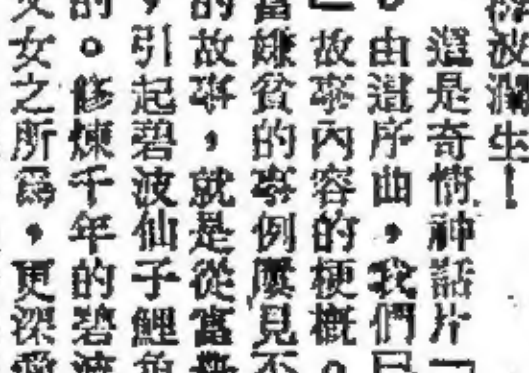 波瀾生！
這是奇情神話片「
。由這序曲，我們已
故事內容的梗概。
嫌貧的事例屢見不
的故事，就是從富
，引起碧波仙子鯉魚
的。修煉千年的碧波
女之所爲，更深愛